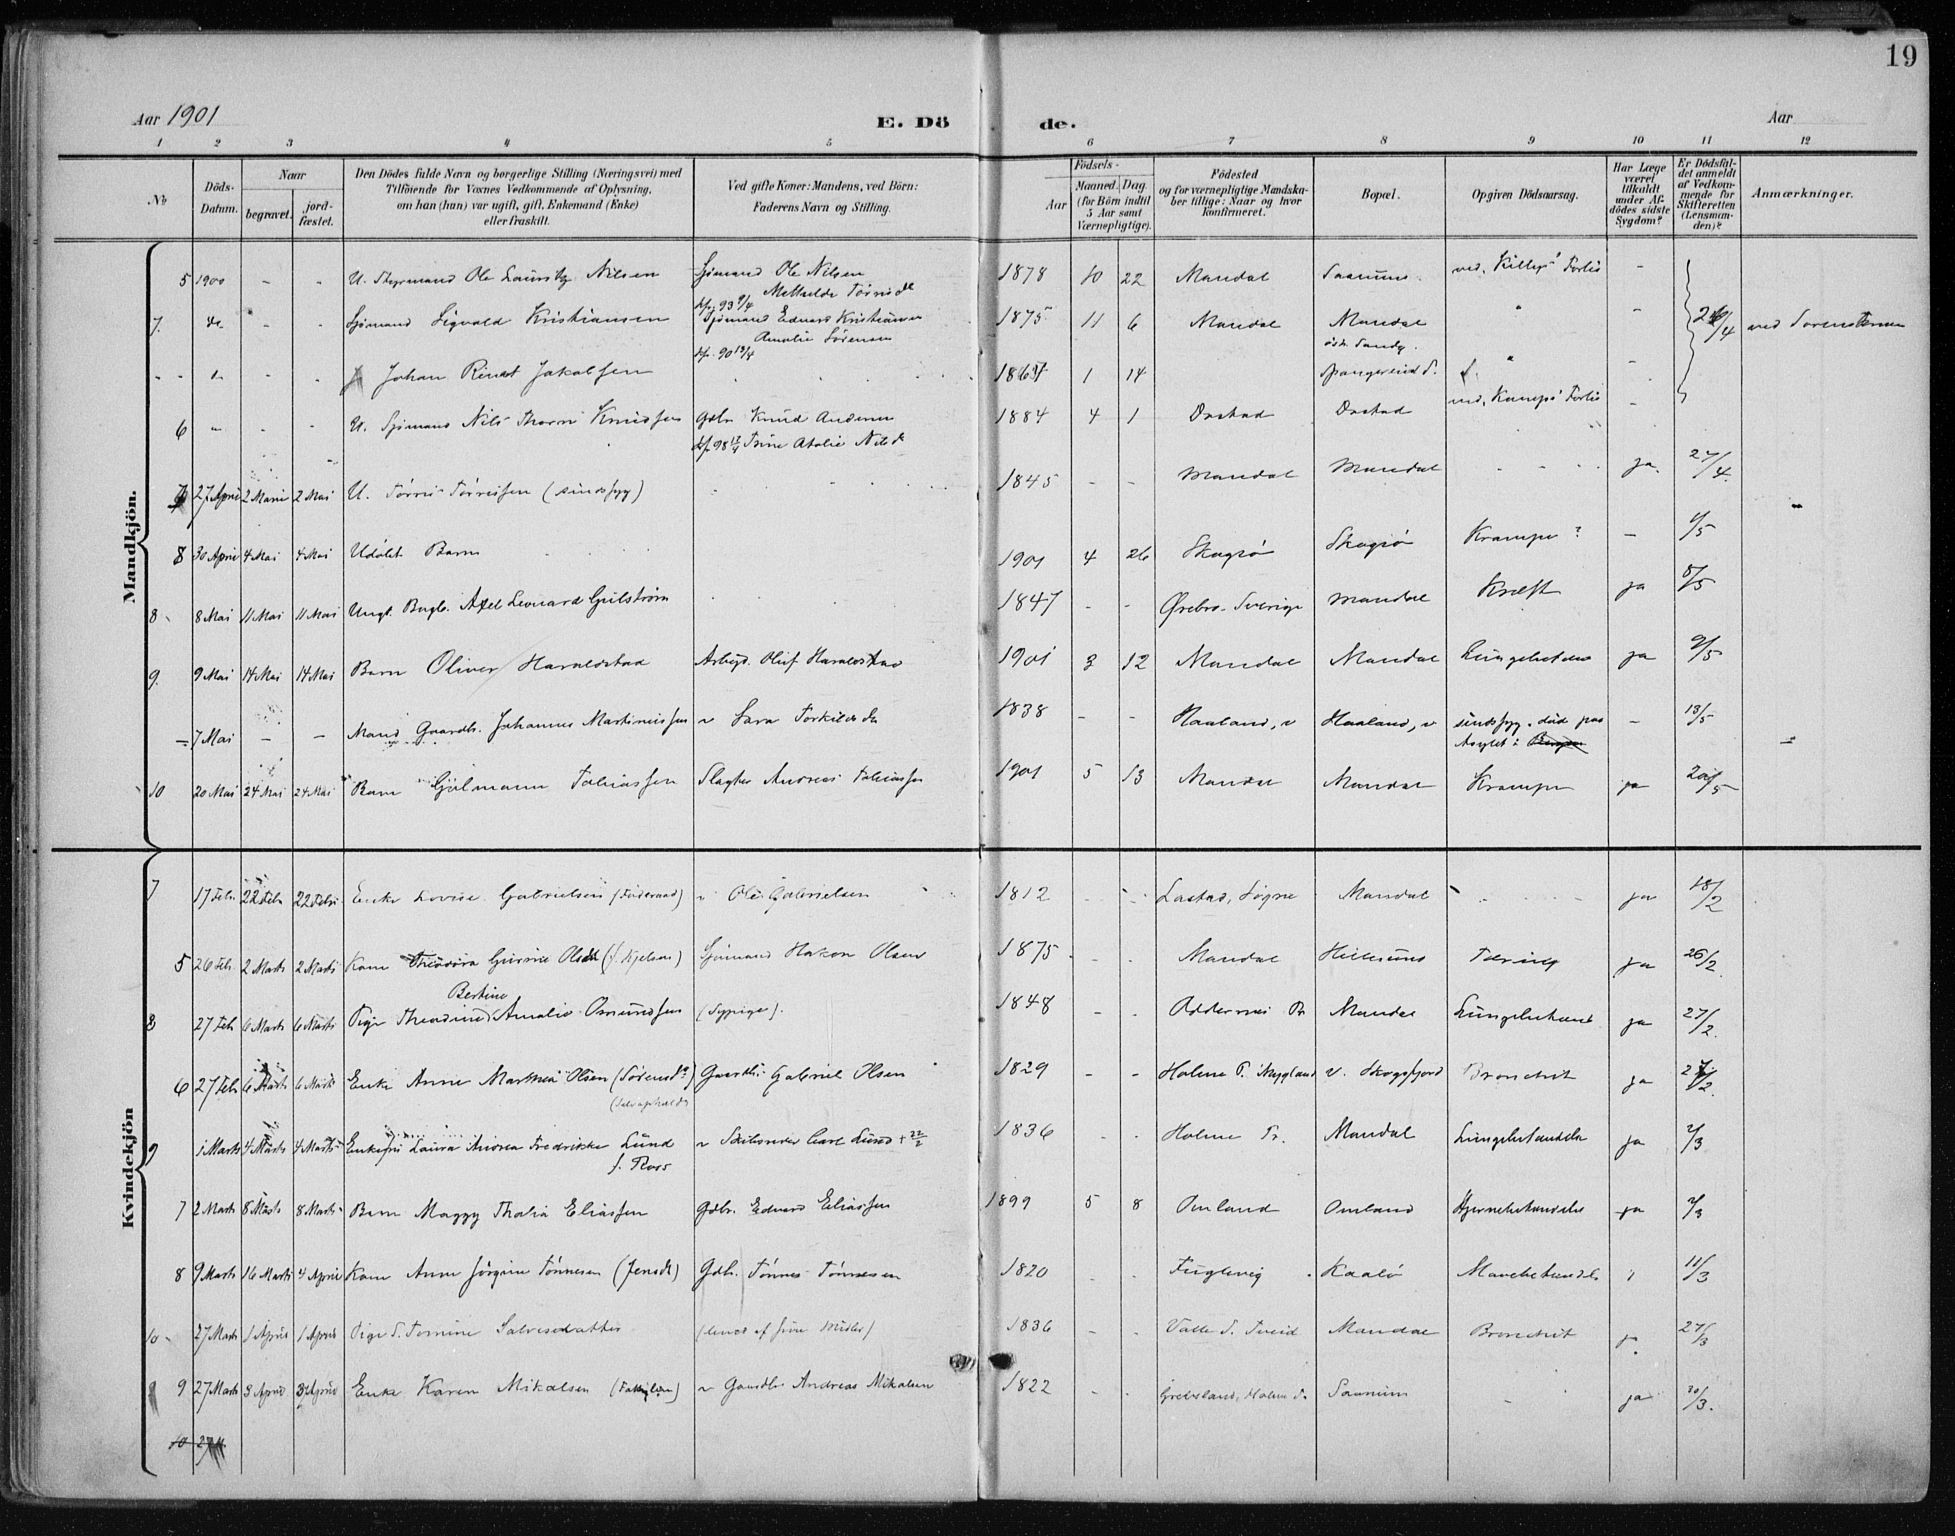 19
Aar 1901
E. Dö de.
Aar
1 2 3 4 5 6 7 8 9 10 11 12
No
Döds-Datum.
Naar
begravet.
jordfæstet.
Den Dödes fulde Navn og borgerlige Stilling (Næringsvei) med
Tilföiende for Voxnes Vedkommende af Oplysning,
om han (hun) var ugift, gift, Enkemand (Enke)
eller fraskilt.
Ved gifte Koner: Mandens, ved Börn:
Faderens Navn og Stilling.
Födsels-
Aar
Maaned. Dag
(for Börn indtil
5 Aar samt
Værnepligtige).
Födested
og for værnepligtige Mandska-
ber tillige: Naar og hvor
konfirmeret.
Bopæl.
Opgiven Dödsaarsag.
Har Læge
været
tilkaldt
under Af-
dödes sidste
Sygdom?
Er Dödsfal-
det anmeldt
af Vedkom-
mende for
Skifteretten
(Lensman-
den)?
Anmærkninger.
Mandkjön.
5 1900 - - U. Styrmand Ole Lauritz Nilsen Sjömand Ole Nilsen 1878 10 22 Mandal Saanum. ved Forlis -
Mathilde Tørrisdt
7. do - - Sjömand Sigvald Kristiansen Sjömand Edvard Kristiansen 1875 11 6 Mandal Mandal " - 26/4 ved
Amalie Sørensen
- - - - Johan Jakobsen 1 14 Spangereid S. "
6 - - - U. Sjömand Nils Knudsen Gdbr Knud Andersen 1884 4 1 Dastad Dastad ved Forlis -
kf. 98 17/4 Trine Atalie Nilsd
7 27 April 2 Mai 2 Mai U. Tørris Tørrissen (sindssyg) 1845 - - Mandal Mandal ja. 27/4
8 30 April 4 Mai 4 Mai Udöbt Barn 1901 4 26 Skogsö Skogsö Krampe? - 1/5
8 8 Mai 11 Mai 11 Mai Ungk. Axel Leonard Gulström 1847 - - Ørebro Sverige Mandal Kræft ja 8/5
9. 9 Mai 14 Mai 14 Mai Barn Oliver Haraldstad Arbejd. Oluf Haraldstad 1901 3 12 Mandal Mandal Lungebetænd ja 9/5
- 7 Mai - - Mand Gaardb. Johannes Martiniussen Sara Torkildsdr 1838 - - Haaland, v Haaland, v sindssyg. död paa - 13/5
Asylet i
10 20 Mai 24 Mai 24 Mai Barn Hjalmann Tobiassen Slagter Andreas Tobiassen 1901 5 13 Mandal Mandal Krampe ja 20/5
Kvindekjön
7 17 Febr 22 Febr 22 Febr Enke Lovise Gabrielsen (Föderaad) Ole Gabrielsen 1812 - - Lastad, Søgne Mandal ja 18/2
5 26 Feb. 2 Marts 2 Marts Kone Theodora Gurine Olsen Sjömand Hakon Olsen 1875 - - Mandal Hillesund Tæring ja 26/2
Bertine
8 27 Feb 6 Marts 6 Marts Pige Theodine Amalie Omundsen (Sypige). 1848 - - Oddernes Pr Mandal Lungebetænd ja 27/2.
6 27 Feb 6 Marts 6 Marts Enke Anne Marthea Olsen (Sørensdr) Gaardb. Gabriel Olsen 1829 - - Holme P. v. Skogsfjord Bronchit ja 27/2.
9 1 Marts 4 Marts 4 Marts Enkefru Laura Andrea Fredrikke Lund Skibsreder Carl Lund + 22/2 1836 - - Holme Pr. Mandal Lungebetændelse ja 2/3
f. Roos
7 2 Marts 8 Marts 8 Marts Barn Maggy Thalia Eliassen Gdbr. Edvard Eliassen 1899 5 8 Omland Omland Hjernebetændelse ja 2/3
8 9 Marts 16 Marts 4 April Kone Anne Jörgine Tönnesen (Jensdt) Gdb. Tönnes Tönnesen 1820 - - Fuglevig Kaalö Mavebetændels 11/3
10 27 Marts 1 April 1 April Pige S. Tomine Salvesdatter 1836 - - Valle S. Tveid Mandal Bronchit ja. 27/3
9 27 Marts 3 April 3 April Enke Karen Mikalsen Gaardbr. Andreas Mikalsen 1822 - - Grebsland, Holme Saanum - ja 30/3.
10